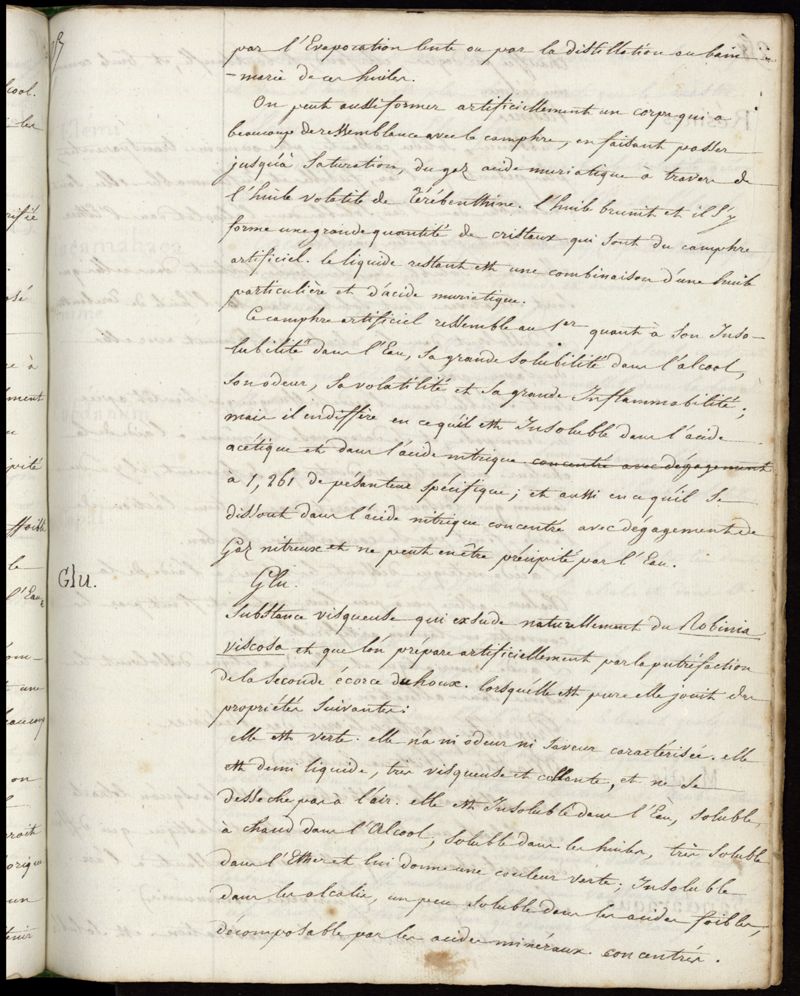 par l'Evaporation lente ou par la distillation au bain
-marie de ces huiles.
On peut aussi former artificiellement un corps qui a
beaucoup de ressemblance avec le camphre, en faisant passer
jusqu'à saturation, du gaz acide muriatique à travers de
l'huile volatile de Térébenthine. l'huile brunit et il s'y
forme une grande quantité de cristaux qui sont du camphre
artificiel. le liquide restant est une combinaison d'une huile
particulière et d'acide muriatique.
Ce camphre artificiel ressemble au 1er quant à son Inso-
lubilité dans l'Eau, sa grande solubilité dans l'alcool,
son odeur, sa volatilité et sa grande Inflammabilité;
mais il en diffère en ce qu'il est Insoluble dans l'acide
acétique et dans l'acide nitrique concentré avec dégagement
à 1,261 de pésanteur spécifique; et aussi en ce qu'il se
dissout dans l'acide nitrique concentré avec dégagement de
Gaz nitreux et ne peut en être précipité par l'Eau.
Glu.
Glu.
Substance visqueuse qui exsude naturellement du Robinia
viscosa et que l'on prépare artificiellement par la putréfaction
de la seconde écorce du houx. lorsqu'elle est pure elle jouit des
propriétés suivantes:
elle est verte. elle n'a ni odeur ni saveur caractérisée. elle
est demi liquide, très visqueuse et collante, et ne se
desseche pas à l'air. elle est Insoluble dans l'Eau, soluble
à chaud dans l'Alcool, soluble dans les huiles, très soluble
dans l'Ether et lui donne une couleur verte; Insoluble
dans les alcalis, un peu soluble dans les acides foibles,
décomposable par les acides minéraux concentrés.